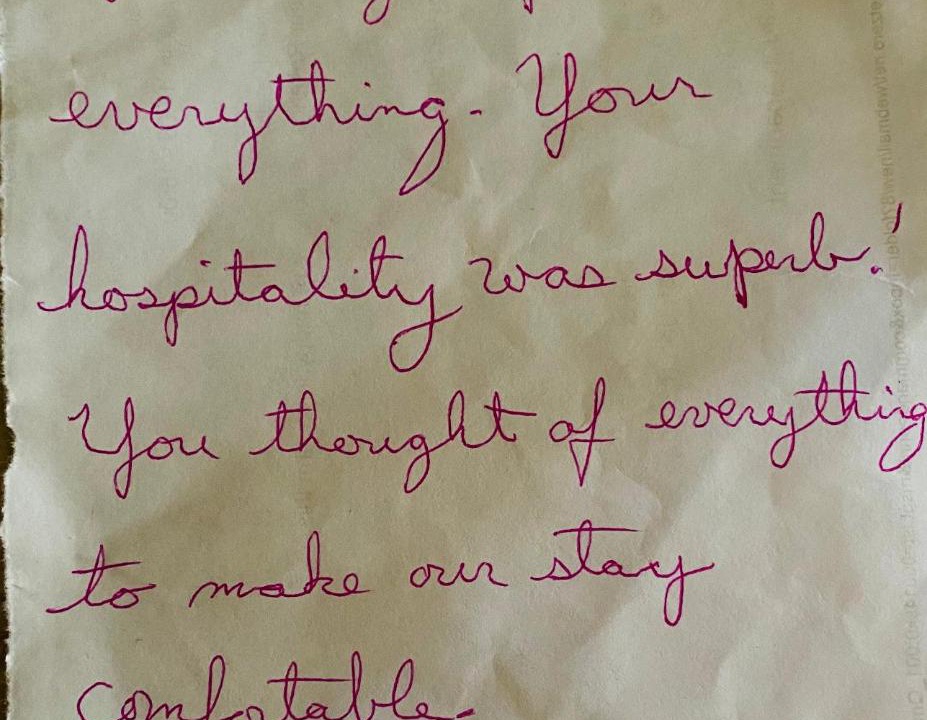 everything. Your
hospitality was superb!
You thought of everything
to make our stay
comfortable.